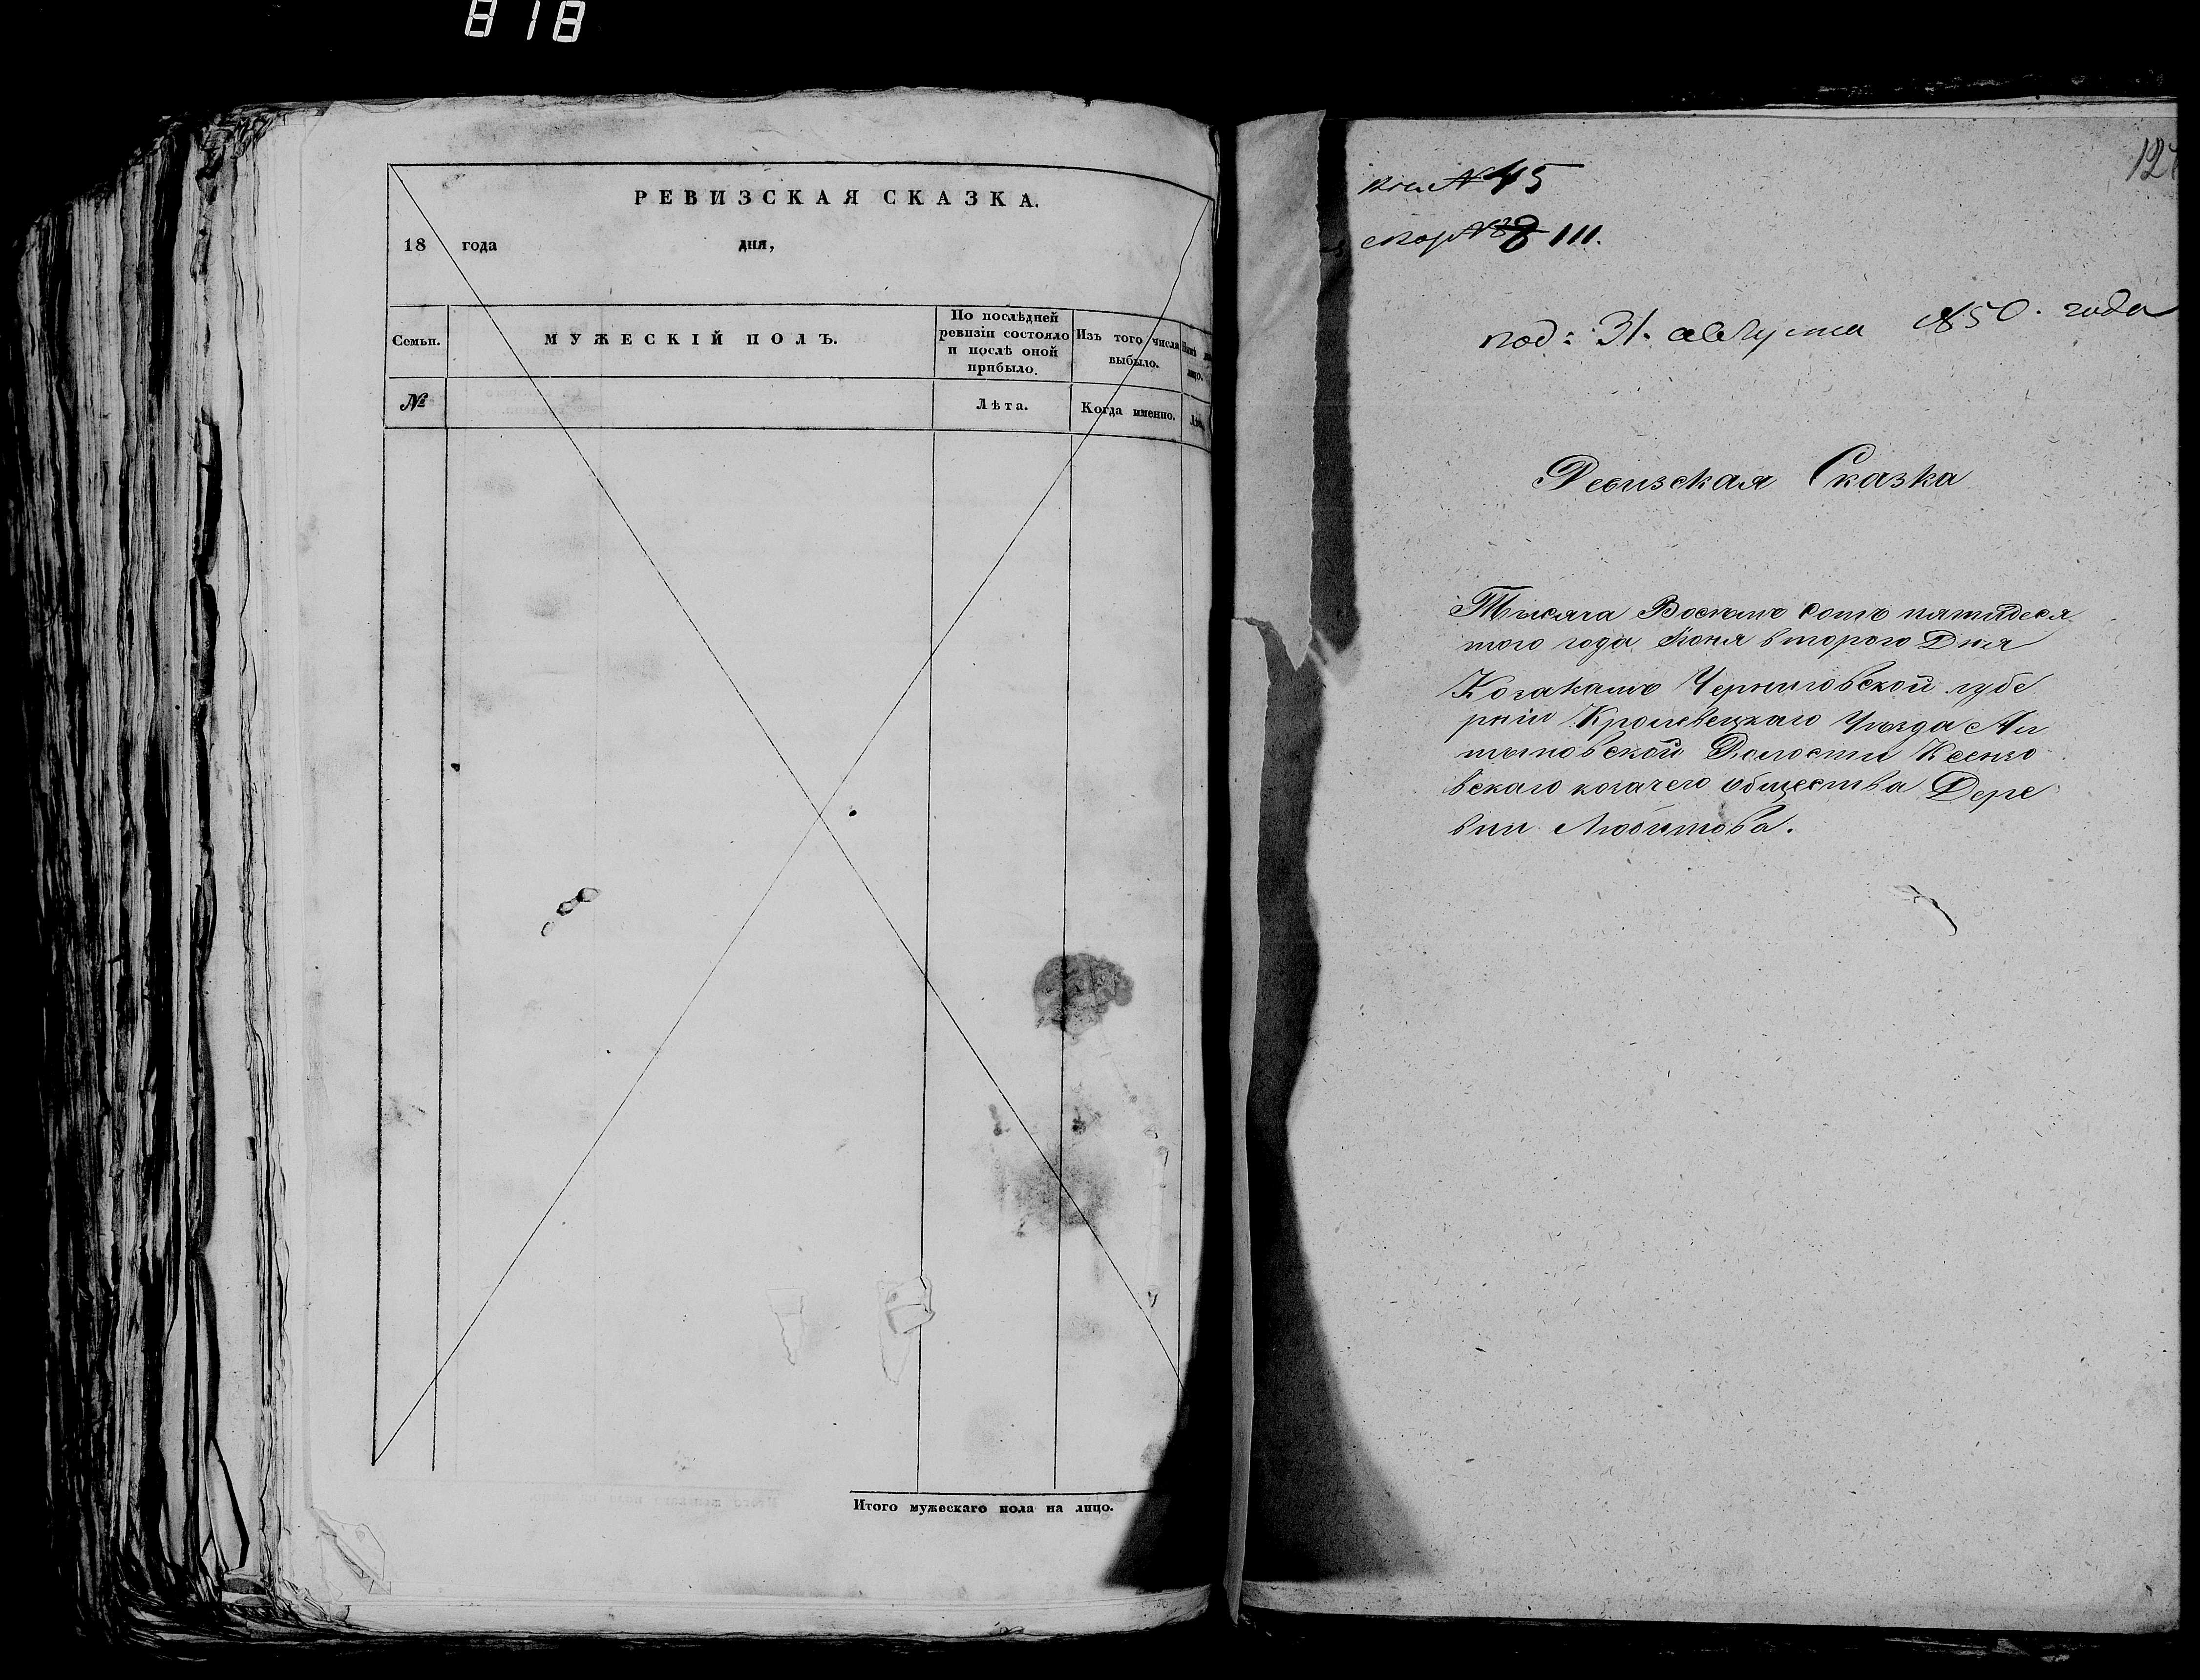 818
РЕВИЗСКАЯ СКАЗКА.
18 года дня,
Семьи.
МУЖЕСКІЙ ПОЛЪ.
По послѣдней
ревизіи состояло
и послѣ оной
прибыло.
Изъ того числа
выбыло.
лицо.
№
Лѣта.
Когда именно.
Итого мужескаго пола на лицо.
№ 45
111.
под: 31. августа 1850. года
Ревизская Сказка
Тысяча Восемь сотъ пятидеся
того года Іюня второго Дня
Козакамъ Черниговской губе
рніи Кролевецкаго Уѣзда Ал
тыновской Волости Ксензо
вскаго козачего общества Дере
вни Любитова.